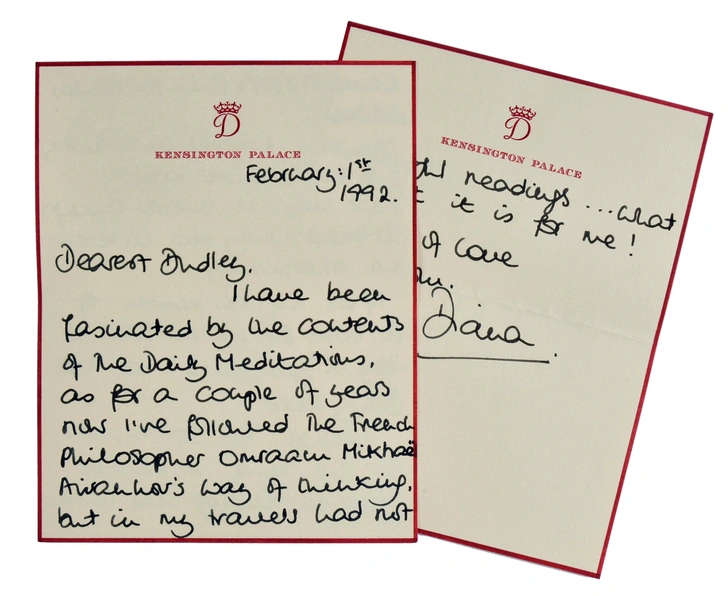 D
KENSINGTON PALACE
February: 1st
1992.
Dearest Dudley.
I have been
fasinated by the contents
of The Daily Meditations,
as for a couple of years
now I've followed The French
Philosopher Omraam Mikhaë
Aivanhov's way of thinking,
but in my travels had not
D
KENSINGTON PALACE
readings ... what
it is for me!
of love
Diana.